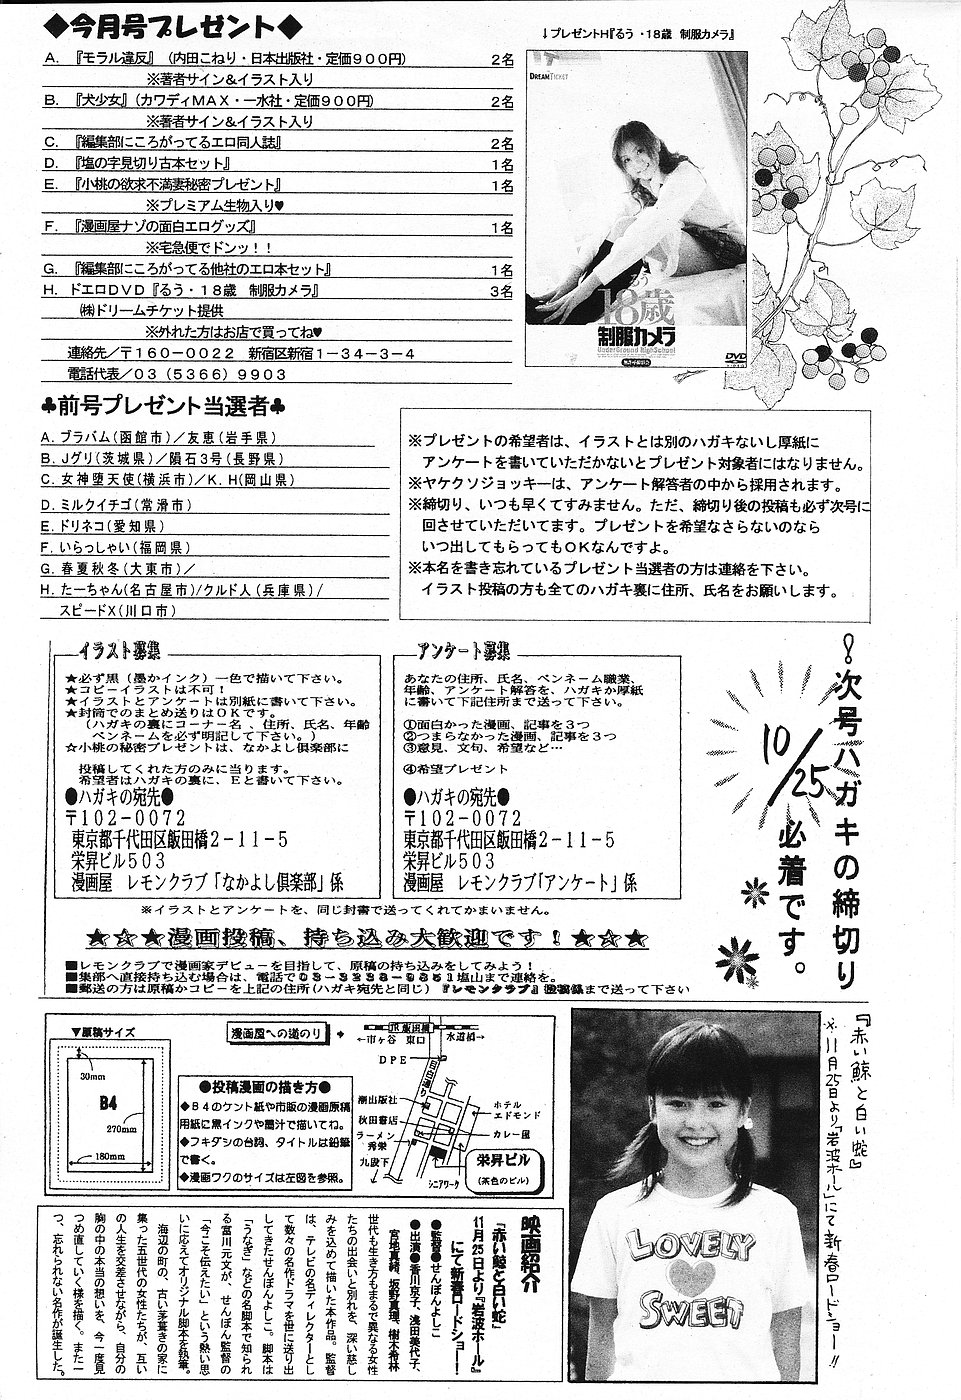 ◆今月号プレゼント◆
A. 『モラル違反』（内田こねり・日本出版社・定価９００円） ２名
※著者サイン＆イラスト入り
B. 『犬少女』（カワディMAX・一水社・定価９００円） ２名
※著者サイン＆イラスト入り
C. 『編集部にころがってるエロ同人誌』 ２名
D. 『塩の字見切り古本セット』 １名
E. 『小桃の欲求不満妻秘密プレゼント』 １名
※プレミアム生物入り♥
F. 『漫画屋ナゾの面白エログッズ』 １名
※宅急便でドンッ！！
G. 『編集部にころがってる他社のエロ本セット』 １名
H. ドエロDVD『るう・１８歳　制服カメラ』 ３名
㈱ドリームチケット提供
※外れた方はお店で買ってね♥
連絡先／〒１６０－００２２　新宿区新宿１－３４－３－４
電話代表／０３（５３６６）９９０３
↓プレゼントH『るう・18歳　制服カメラ』
DREAM TICKET
るう
18歳
制服カメラ
UnderGround HighSchool
DVD
♣前号プレゼント当選者♣
A. ブラバム（函館市）／友恵（岩手県）
B. Jグリ（茨城県）／隕石３号（長野県）
C. 女神堕天使（横浜市）／K. H（岡山県）
D. ミルクイチゴ（常滑市）
E. ドリネコ（愛知県）
F. いらっしゃい（福岡県）
G. 春夏秋冬（大東市）／
H. たーちゃん（名古屋市）/クルド人（兵庫県）/
スピードX（川口市）
※プレゼントの希望者は、イラストとは別のハガキないし厚紙に
アンケートを書いていただかないとプレゼント対象者にはなりません。
※ヤケクソジョッキーは、アンケート解答者の中から採用されます。
※締切り、いつも早くてすみません。ただ、締切り後の投稿も必ず次号に
回させていただいてます。プレゼントを希望なさらないのなら
いつ出してもらってもOKなんですよ。
※本名を書き忘れているプレゼント当選者の方は連絡を下さい。
イラスト投稿の方も全てのハガキ裏に住所、氏名をお願いします。
イラスト募集
★必ず黒（墨かインク）一色で描いて下さい。
★コピーイラストは不可！
★イラストとアンケートは別紙に書いて下さい。
★封筒でのまとめ送りはOKです。
（ハガキの裏にコーナー名、住所、氏名、年齢
ペンネームを必ず明記して下さい。）
☆小桃の秘密プレゼントは、なかよし倶楽部に
投稿してくれた方のみに当ります。
希望者はハガキの裏に、Eと書いて下さい。
●ハガキの宛先●
〒１０２－００７２
東京都千代田区飯田橋２－１１－５
栄昇ビル５０３
漫画屋　レモンクラブ「なかよし倶楽部」係
アンケート募集
あなたの住所、氏名、ペンネーム職業、
年齢、アンケート解答を、ハガキか厚紙
に書いて下記住所まで送って下さい。
①面白かった漫画、記事を３つ
②つまらなかった漫画、記事を３つ
③意見、文句、希望など…
④希望プレゼント
●ハガキの宛先●
〒１０２－００７２
東京都千代田区飯田橋２－１１－５
栄昇ビル５０３
漫画屋　レモンクラブ「アンケート」係
！次号ハガキの締切り
10/25
必着です。
※イラストとアンケートを、同じ封書で送ってくれてかまいません。
★☆★漫画投稿、持ち込み大歓迎です！★☆★
■レモンクラブで漫画家デビューを目指して、原稿の持ち込みをしてみよう！
■集部へ直接持ち込む場合は、電話で 塩山まで連絡を。
■郵送の方は原稿かコピーを上記の住所（ハガキ宛先と同じ）『レモンクラブ』 係まで送って下さい
▼原稿サイズ
30mm
B4
270mm
180mm
漫画屋への道のり
JR飯田橋
←市ヶ谷　東口　水道橋→
DPE
目白通り
潮出版社
秋田書店
ラーメン
秀栄
九段下
ホテル
エドモンド
カレー屋
栄昇ビル
（茶色のビル）
シニアワーク
●投稿漫画の描き方●
◆Ｂ４のケント紙や市販の漫画原稿
用紙に黒インクや墨汁で描いてね。
◆フキダシの台詞、タイトルは鉛筆
で書く。
◆漫画ワクのサイズは左図を参照。
LOVELY
SWEET
『赤い鯨と白い蛇』
※11月25日より「岩波ホール」にて新春ロードショー!!
映画紹介
『赤い鯨と白い蛇』
11月25日より『岩波ホール』
にて新春ロードショー！
●監督●せんぼんよしこ
●出演●香川京子、浅田美代子、
宮地真緒、坂野真理、樹木希林
世代も生き方もまるで異なる女性
たちの出会いと別れを、深い慈し
みを込めて描いた本作品。監督
は、テレビの名ディレクターとし
て数々の名作ドラマを世に送り出
してきたせんぼんよしこ。脚本は
「うなぎ」などの名脚本で知られ
る冨川元文が、せんぼん監督の
「今こそ伝えたい」という熱い思
いに応えてオリジナル脚本を執筆。
海辺の町の、古い茅葺きの家に
集った五世代の女性たちが、互い
の人生を交差させながら、自分の
胸の中の本当の想いを、今一度見
つめ直していく様を描く。また一
つ、忘れられない名作が誕生した。